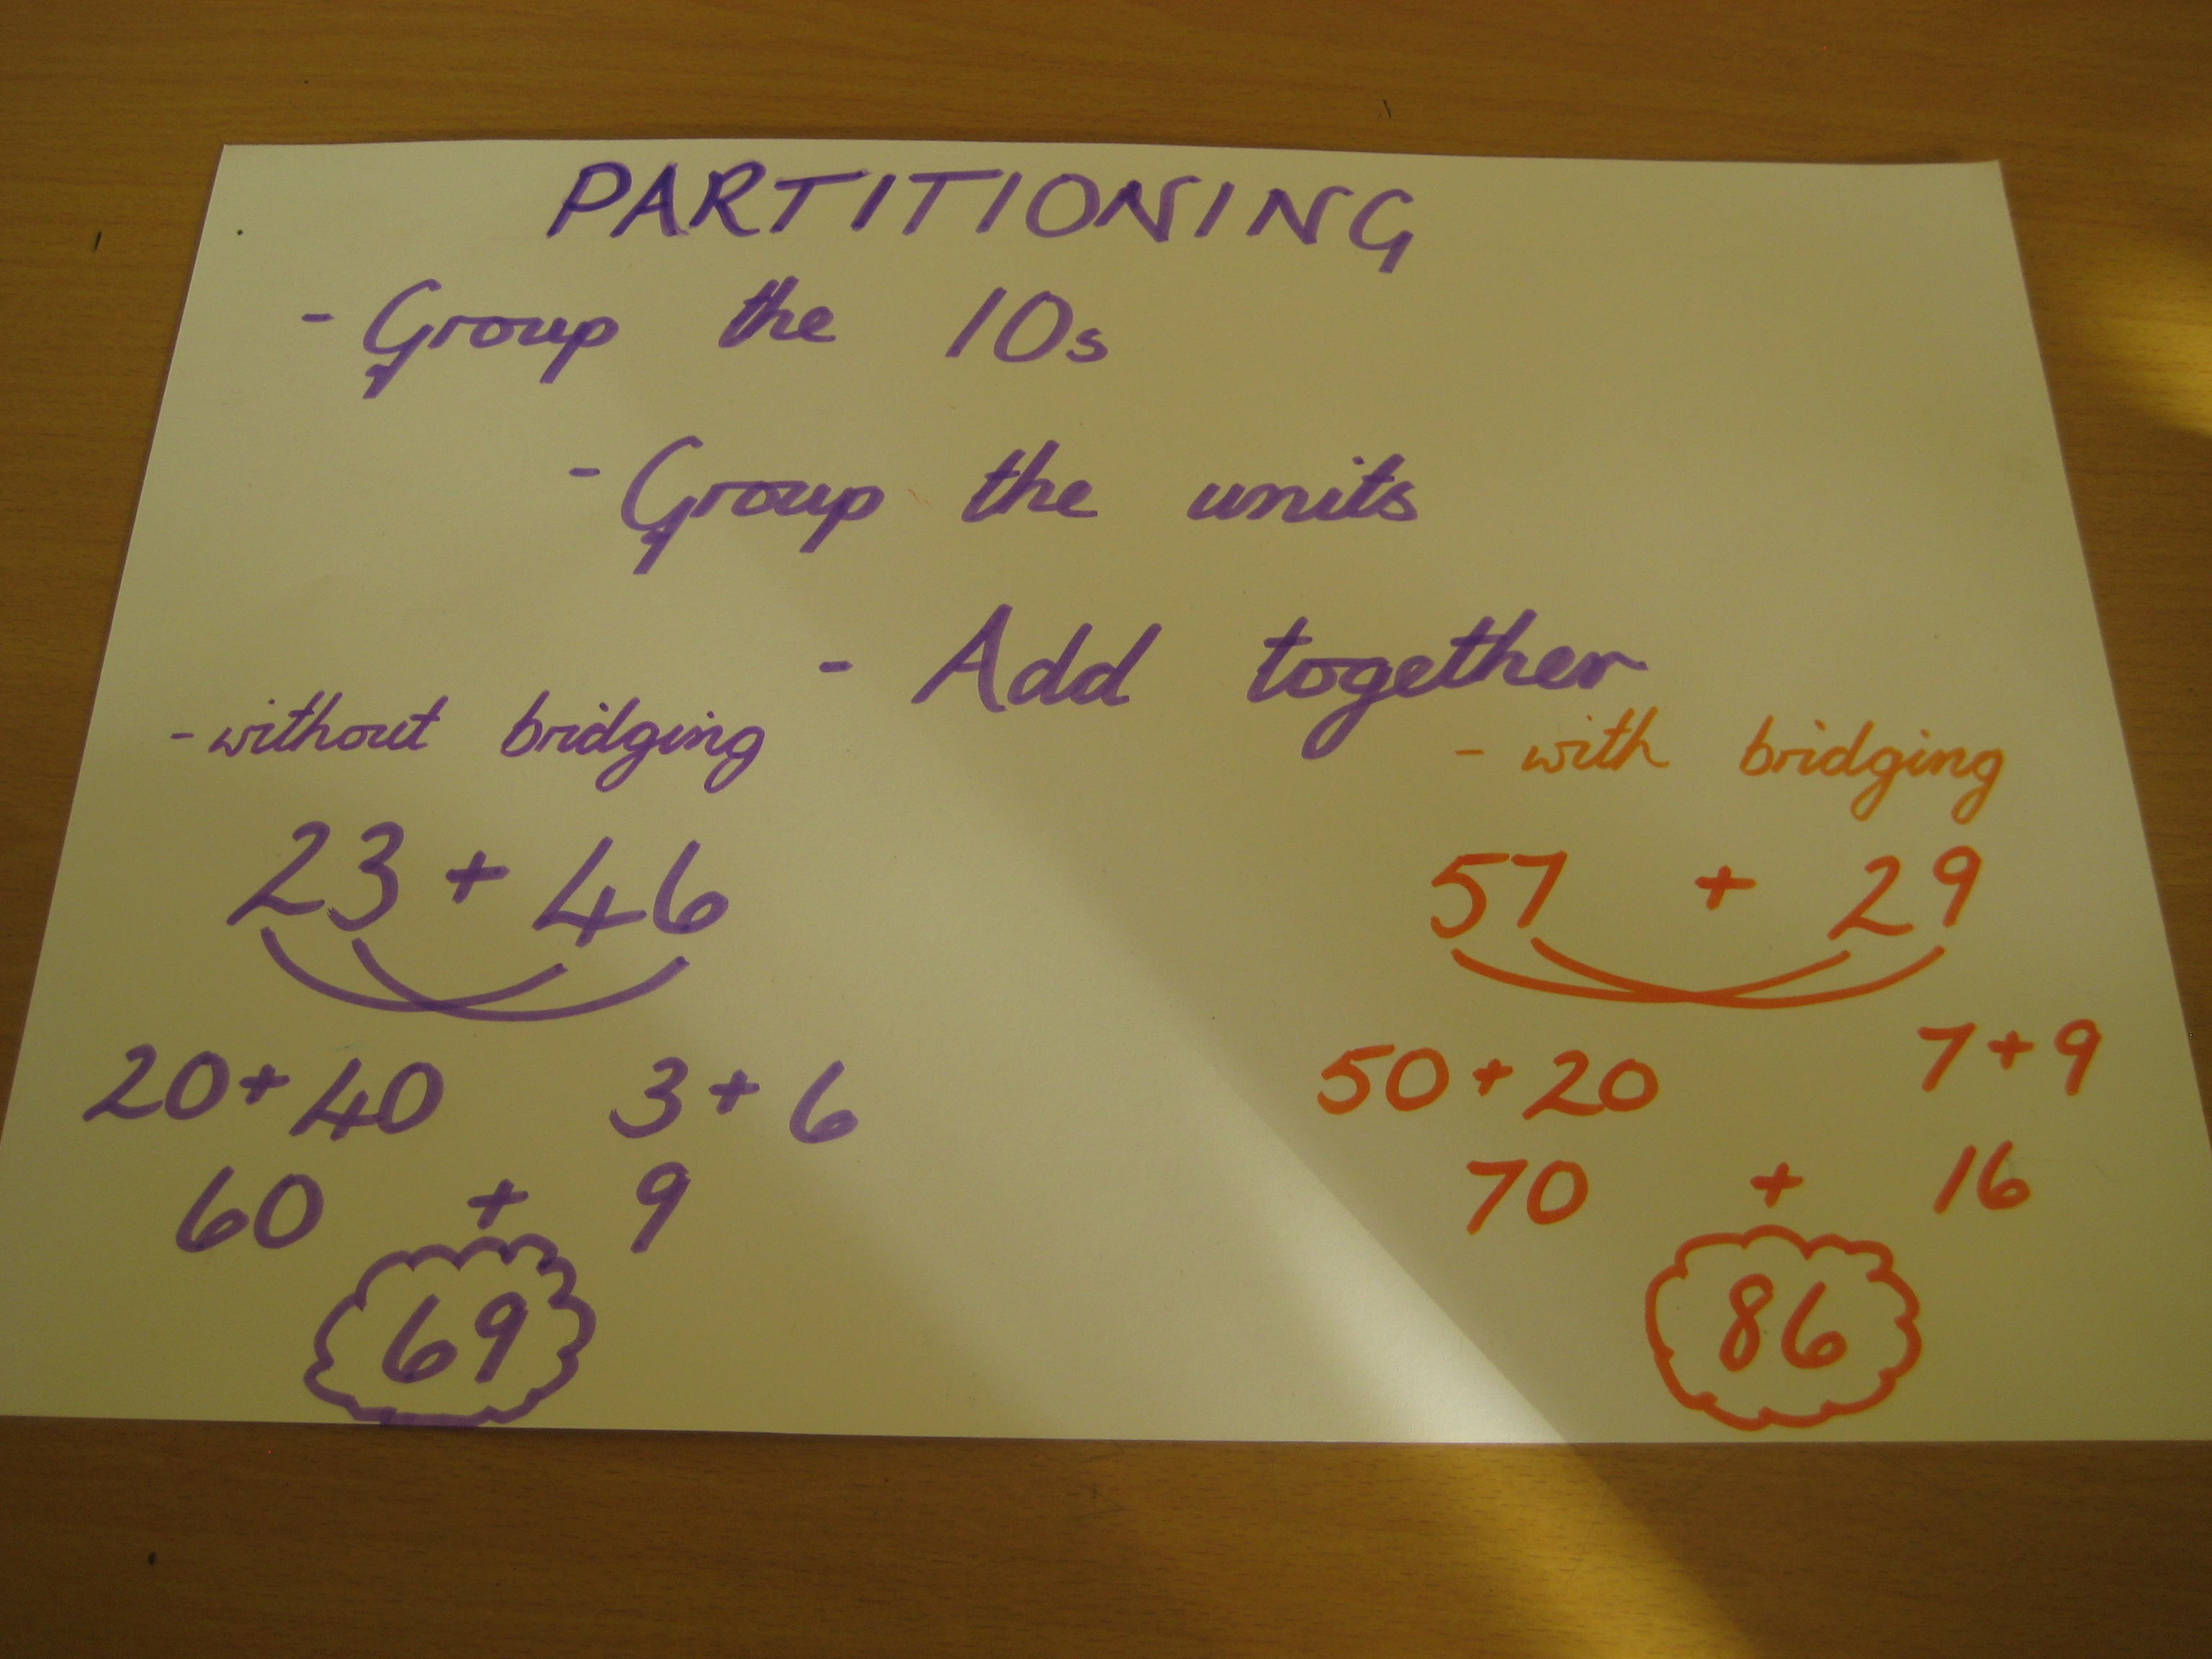 PARTITIONING
- Group the 10s
- Group the units
- Add together
- without bridging
23 + 46
20 + 40 3 + 6
60 + 9
69
- with bridging
57 + 29
50 + 20 7 + 9
70 + 16
86